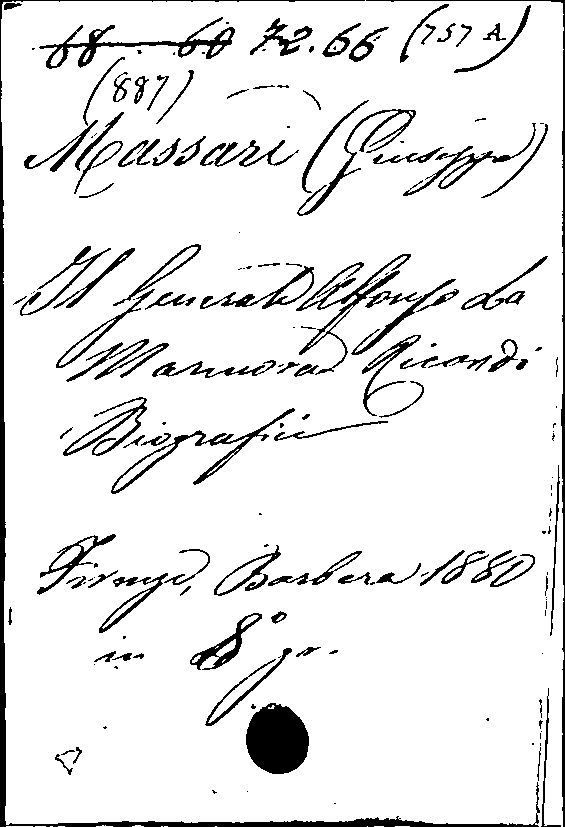 68. 60 72.66 (757 A)
(887)
Massari (Giuseppe)
Il Generale Alfonso La
Marmora Ricordi
Biografici
Firenze, Barbera 1880
in 8° gr.